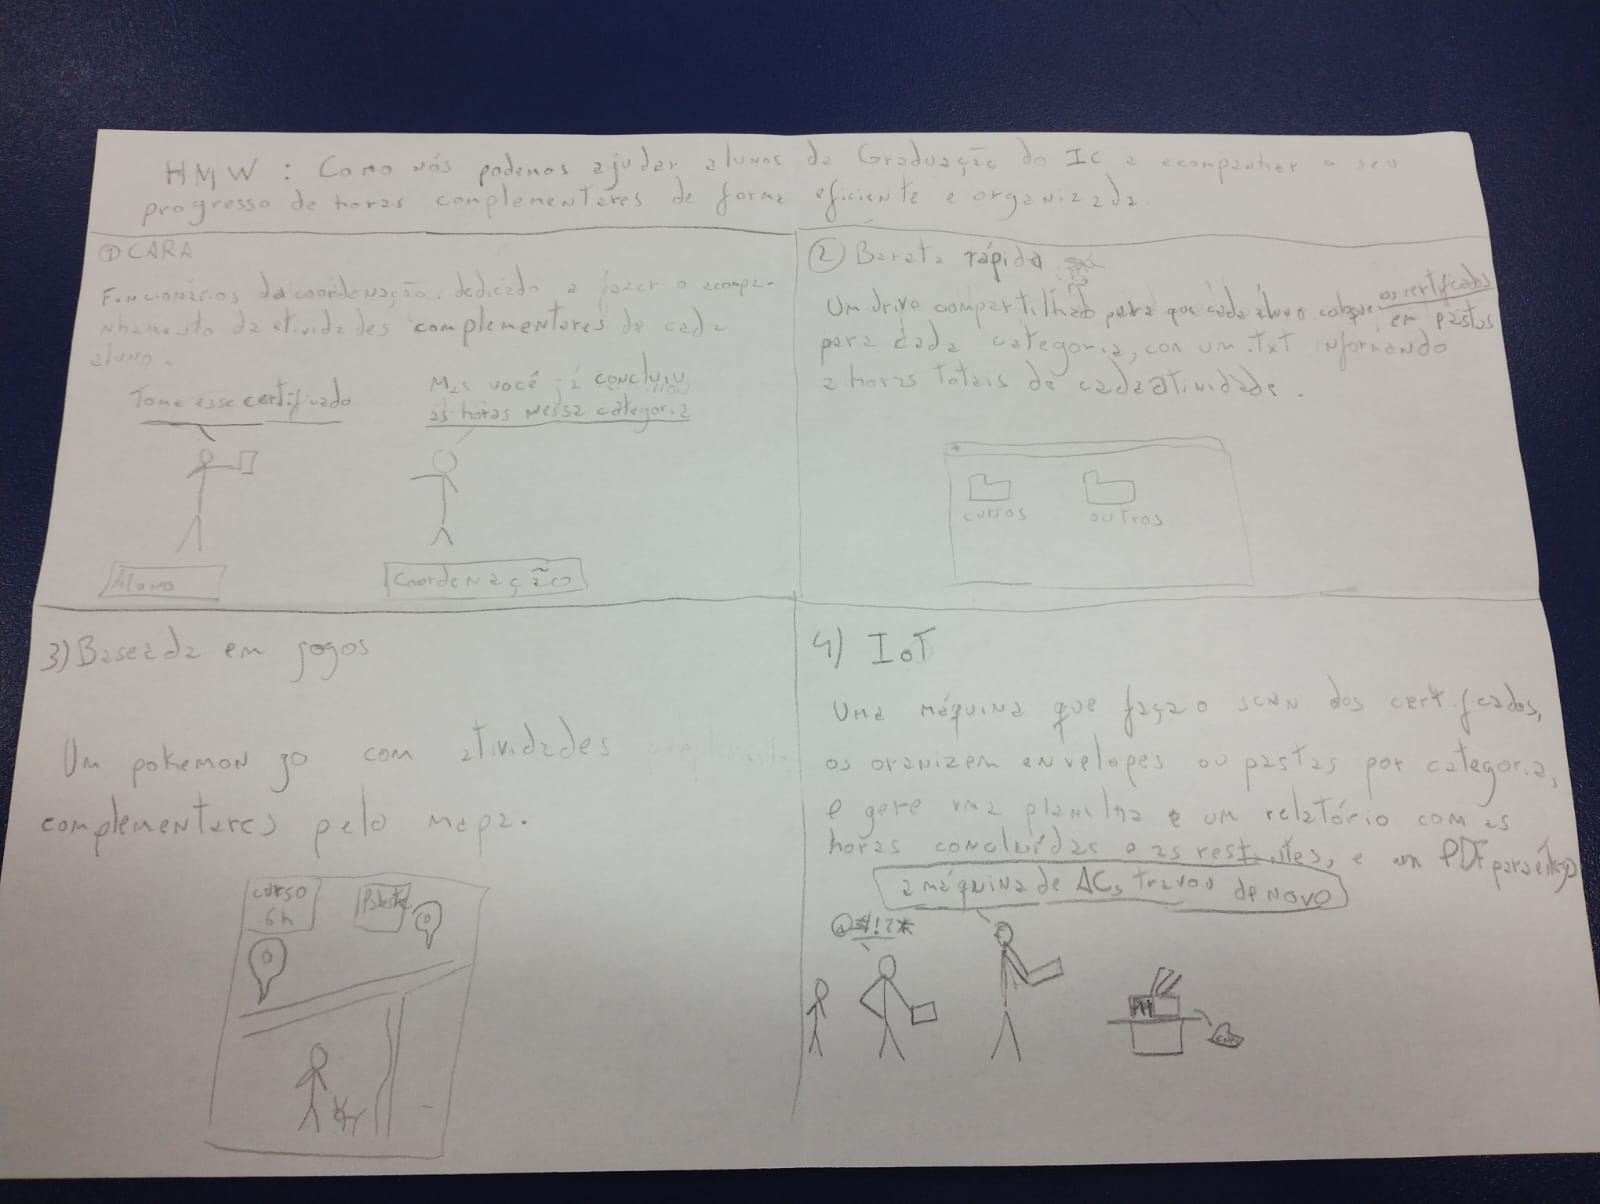 HMW : Como nós podemos ajudar alunos da Graduação do IC a acompanhar o seu
progresso de horas complementares de forma eficiente e organizada.
① CARA
Funcionários da coordenação, dedicado a fazer o acompa-
nhamento da atividades complementares de cada
aluno.
Tome esse certificado
Mas você já concluiu
as horas nessa categoria
Aluno
Coordenação
② Barata rápida
Um drive compartilhado para que cada aluno coloque os certificados em pastas
para cada categoria, con um .txt informando
a horas totais de cada atividade.
cursos
outros
3) Baseada em jogos
Um pokemon go com atividades
complementares pelo mapa.
curso
6h
Palestra
4) IoT
Uma máquina que faça o scan dos certificados,
os oranizem envelopes ou pastas por categoria,
e gere uma planilha e um relatório com as
horas concluídas e as restantes, e um PDF para
a máquina de ACs travou de novo
@#!?*